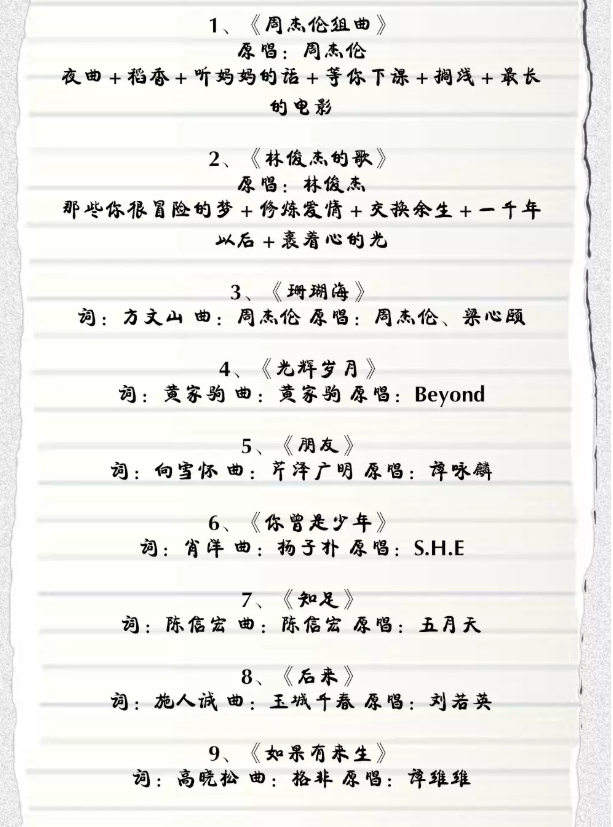 1、《周杰伦组曲》
原唱：周杰伦
夜曲+稻香+听妈妈的话+等你下课+搁浅+最长
的电影
2、《林俊杰的歌》
原唱：林俊杰
那些你很冒险的梦+修炼爱情+交换余生+一千年
以后+裹着心的光
3、《珊瑚海》
词：方文山 曲：周杰伦 原唱：周杰伦、梁心颐
4、《光辉岁月》
词：黄家驹 曲：黄家驹 原唱：Beyond
5、《朋友》
词：向雪怀 曲：芹泽广明 原唱：谭咏麟
6、《你曾是少年》
词：肖洋 曲：杨子朴 原唱：S.H.E
7、《知足》
词：陈信宏 曲：陈信宏 原唱：五月天
8、《后来》
词：施人诚 曲：玉城千春 原唱：刘若英
9、《如果有来生》
词：高晓松 曲：格非 原唱：谭维维